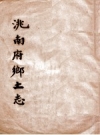 洮南府鄉土志